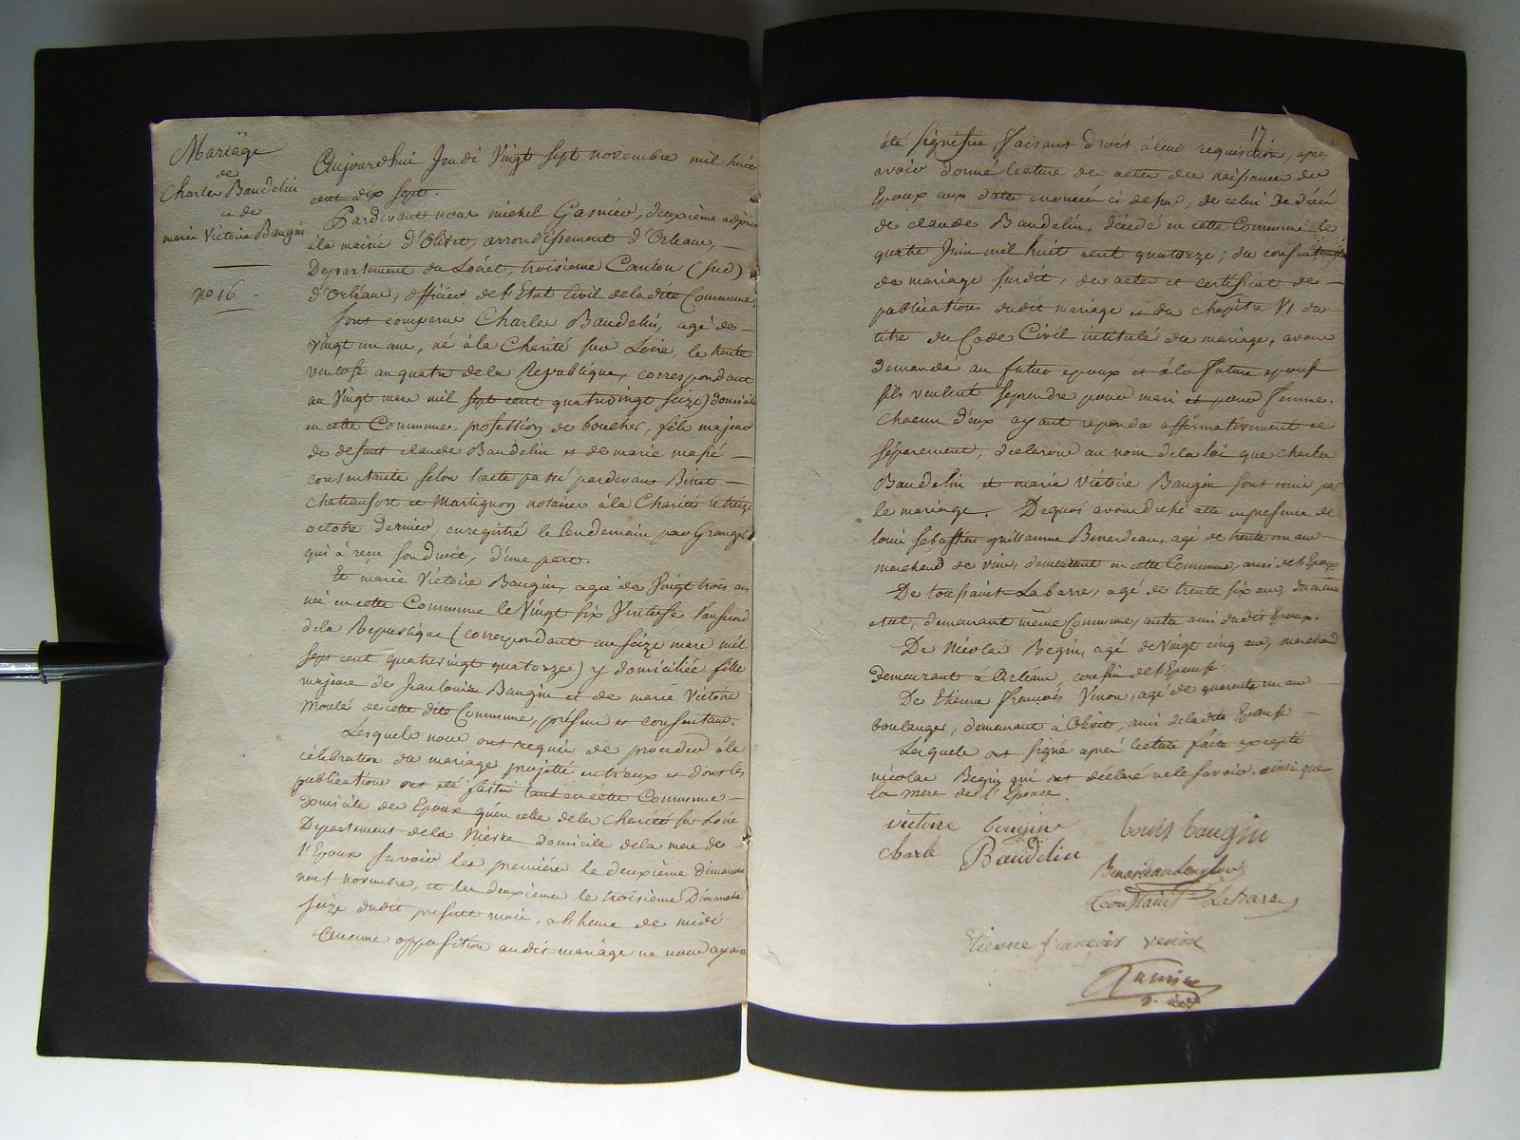 Mariage
de
Charles Baudelin
et de
marie Victoire Baugin
no 16
Aujourdhui Jeudi Vingt sept novembre mil huit
cent dix sept.
Pardevant nous michel Gasnier, deuxième adjoint
à la mairie d'Olivet, arrondissement d'Orléans,
Departement du Loiret, troisieme Canton (sud)
d'Orléans, officier de l'Etat Civil de ladite Commune,
sont comparus Charles Baudelin, agé de
vingt un ans, né à la Charité sur Loire le trente
ventose an quatre de la République, correspondant
au Vingt mars mil sept cent quatrevingt seize) domicilié
en cette Commune, profession de boucher, fils majeur
de defunt claude Baudelin et de marie
consentante selon l'acte passé pardevant Binet
Chateaufort et Martignon notaires à la Charité le treize
octobre dernier, enregistré le lendemain par Granger
qui a reçu son droit, d'une part.
Et marie Victoire Baugin, agée de Vingt trois ans
née en cette Commune le Vingt six Ventose l'an second
de la Republique (correspondant au seize mars mil
sept cent quatrevingt quatorze) y domiciliée fille
majeure de Jean louis Baugin et de marie Victoire
Moulé de cette dite Commune, présens et consentans.
Lesquels nous ont requis de procéder à la
célébration du mariage projetté entr'eux et dont les
publications ont été faites tant en cette Commune
domicile des Epoux qu'en celle de la Charité sur Loire
Departement de la Nièvre domicile de la mere de
l'Epoux savoir les premières le deuxième dimanche
neuf novembre, et les deuxiemes le troisieme Dimanche
seize dudit présent mois, à l'heure de midi
Aucune opposition audit mariage ne nous ayant
17
été signifiée, Faisant droit à leur requisition, après
avoir donné lecture des actes de naissance des
Epoux aux dates enoncées ci dessus, de celui de décès
de claude Baudelin, décédé en cette Commune le
quatre Juin mil huit cent quatorze; du consentement
de mariage susdit, des actes et certificat de
publications dudit mariage et du chapitre VI du
titre du Code Civil intitulé du mariage, avons
demandé au futur epoux et à la Future epouse
s'ils veulent se prendre pour mari et pour Femme.
Chacun d'eux ayant repondu affirmativement et
séparement, déclarons au nom de la loi que charles
Baudelin et marie Victoire Baugin sont unis par
le mariage. De quoi avons dressé acte en presence de
louis sebastien guillaume Benardeau, agé de trente un ans
marchand de vins, demeurant en cette Commune, ami de l'Epoux
De toussaint Labarre, agé de trente six ans,
demeurant même Commune, autre ami dudit Epoux.
De Nicolas Begin, agé de vingt cinq ans, marchand
demeurant à Orléans, cousin de l'Epouse
De Etienne François Venon, agé de quarante un ans
boulanger, demeurant à Olivet, ami de ladite Epouse
Lesquels ont signé après lecture faite excepté
nicolas Begin qui ont déclaré ne le savoir, ainsi que
la mere de l'Epouse.
victoire baugin louis baugin
charle Baudelin
Toussaint Labarre
Etienne françois venon
Gasnier